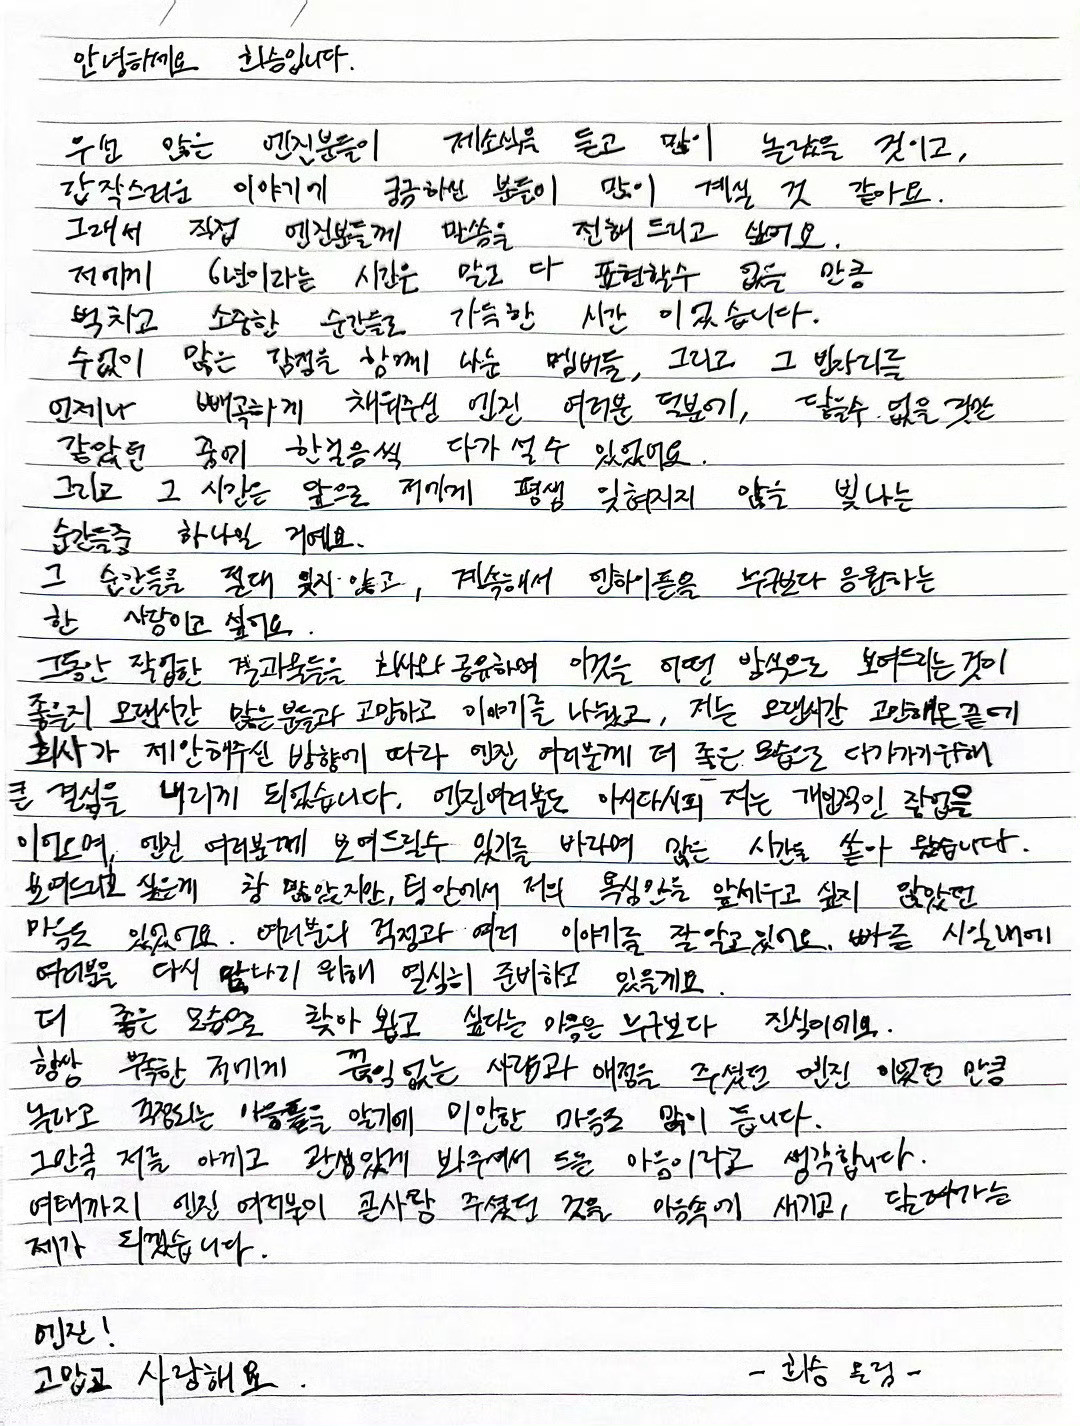 안녕하세요 희승입니다.
우선 많은 엔진분들이 제소식을 듣고 많이 놀랐을 것이고,
갑작스러운 이야기에 궁금하신 분들이 많이 계실 것 같아요.
그래서 직접 엔진분들께 말씀을 전해 드리고 싶어요.
저에게 6년이라는 시간은 말로 다 표현할수 없을 만큼
벅차고 소중한 순간들로 가득한 시간 이었습니다.
수없이 많은 감정을 함께 나눈 멤버들, 그리고 그 빈자리를
언제나 빼곡하게 채워주신 엔진 여러분 덕분에, 닿을수 없을 것만
같았던 꿈에 한걸음씩 다가 설 수 있었어요.
그리고 그 시간은 앞으로 저에게 평생 잊혀지지 않을 빛나는
순간들중 하나일 거예요.
그 순간들을 절대 잊지 않고, 계속해서 엔하이픈을 누구보다 응원하는
한 사람이고 싶어요.
그동안 작업한 결과물들을 회사와 공유하며 이것을 어떤 방식으로 보여드리는 것이
좋을지 오랜시간 많은 분들과 고민하고 이야기를 나눴고, 저는 오랜시간 고민해온 끝에
회사가 제안해주신 방향에 따라 엔진 여러분께 더 좋은 모습으로 다가가기위해
큰 결심을 내리게 되었습니다. 엔진여러분도 아시다시피 저는 개인적인 작업을
이어오며, 엔진 여러분께 보여드릴수 있기를 바라며 많은 시간을 쏟아 왔습니다.
보여드리고 싶은게 참 많았지만, 팀 안에서 저의 욕심만을 앞세우고 싶지 않았던
마음도 있었어요. 여러분의 걱정과 여러 이야기를 잘 알고 있어요. 빠른 시일내에
여러분을 다시 만나기 위해 열심히 준비하고 있을게요.
더 좋은 모습으로 찾아 뵙고 싶다는 마음은 누구보다 진심이에요.
항상 부족한 저에게 끊임 없는 사랑과 애정을 주셨던 엔진 이었던 만큼
놀라고 걱정되는 마음들을 알기에 미안한 마음도 많이 듭니다.
그만큼 저를 아끼고 관심있게 봐주셔서 드는 마음이라고 생각합니다.
여태까지 엔진 여러분이 큰사랑 주셨던 것을 마음속에 새기고, 달려가는
제가 되겠습니다.
엔진!
고맙고 사랑해요.
- 희승 올림 -